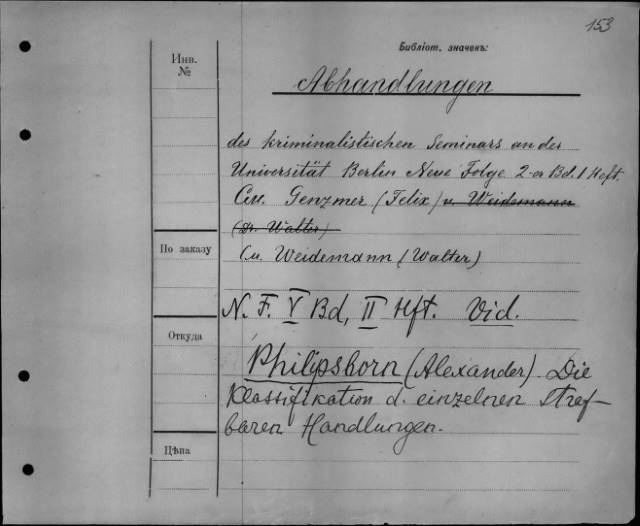 153
Библіот. значекъ:
Инв.
№
Abhandlungen
des kriminalistischen Seminars an der
Universität Berlin Neue Folge 2-er Bd. 1 Heft.
См. Genzmer (Felix) u. Weidemann
(Dr. Walter)
По заказу
См. Weidemann (Walter)
N. F. V Bd, II Hft. Vid.
Откуда
Philipsborn (Alexander). Die
Klassifikation d. einzelnen Straf-
baren Handlungen.
Цѣна